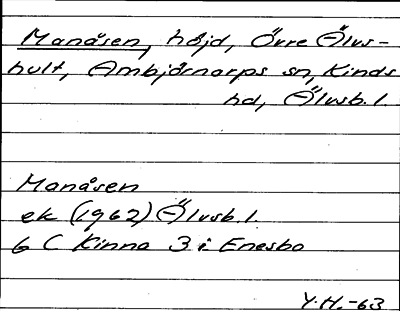 Manåsen, höjd, Övre Älvs-
hult, Ambjörnarps sn, Kinds
hd, Älvsb. l.
Manåsen
ek (1962) Älvsb. l.
6 C Kinna 3 i Enesbo
Y.H. -63